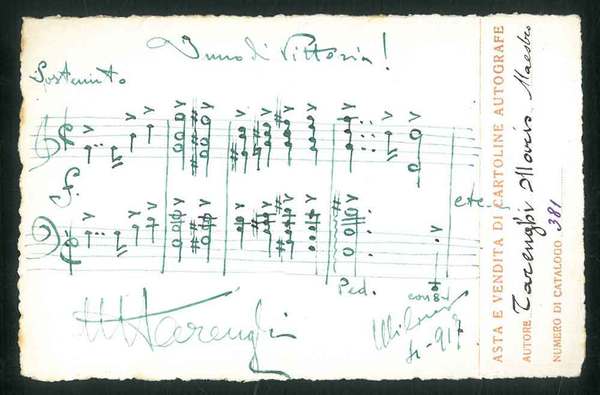 Inno di Vittoria!
Sostenuto
etc.
Ped.
con 8a
M Tarenghi
Milano
917
ASTA E VENDITA DI CARTOLINE AUTOGRAFE
AUTORE Tarenghi Mario Maestro
NUMERO DI CATALOGO 381